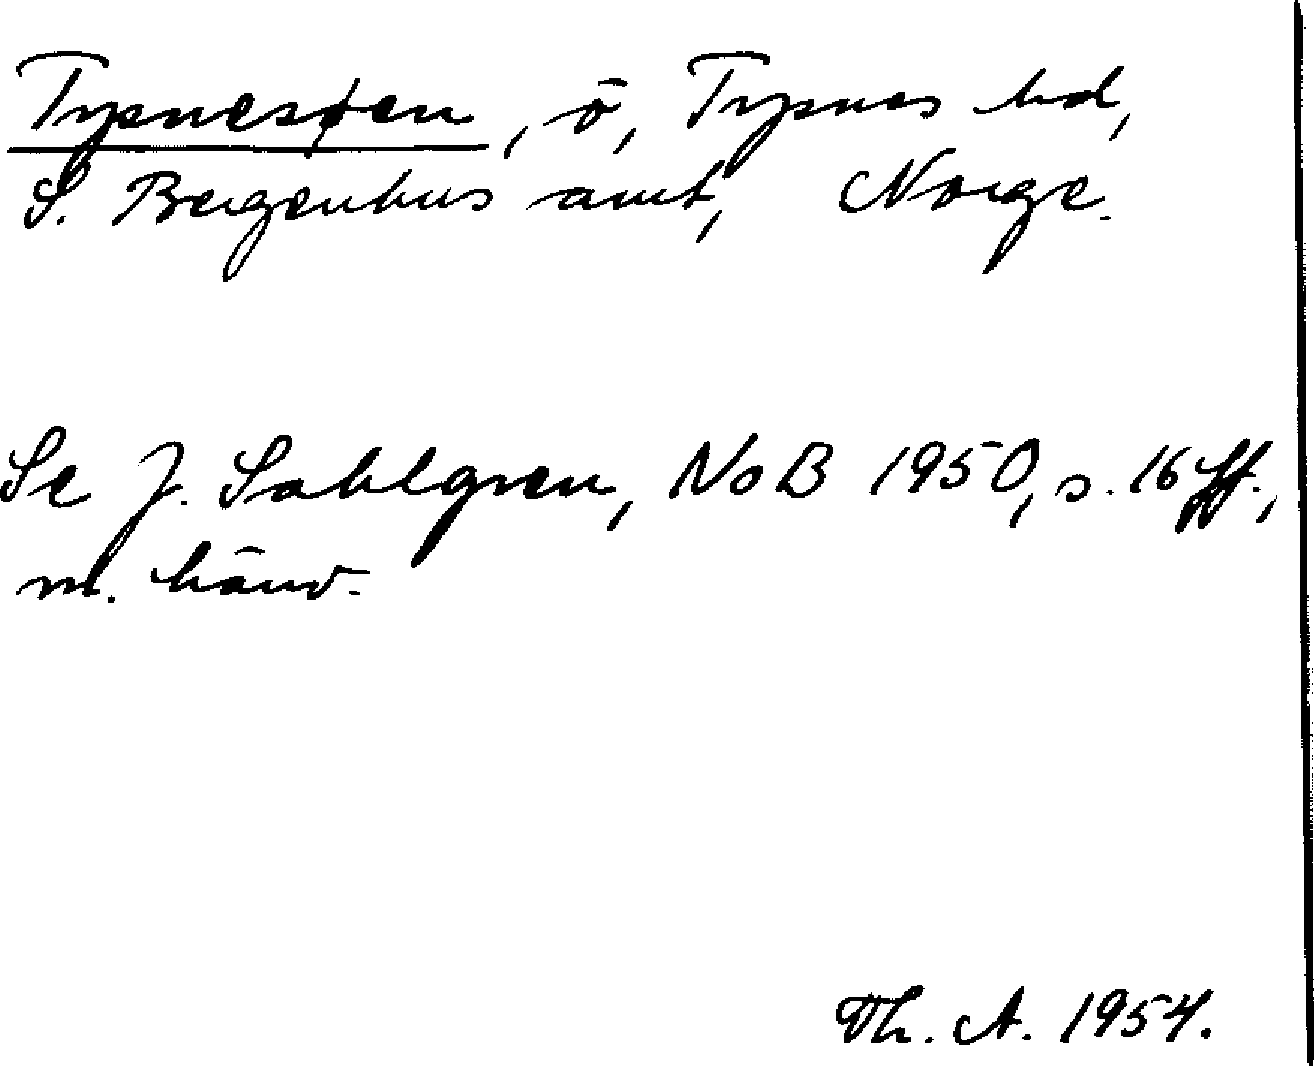 Tysnesøen, ö, Tysnes hd,
S. Bergenhus amt, Norge.
Se J. Sahlgren, NoB 1950, s. 16 ff.,
m. hänv.
Th. A. 1954.